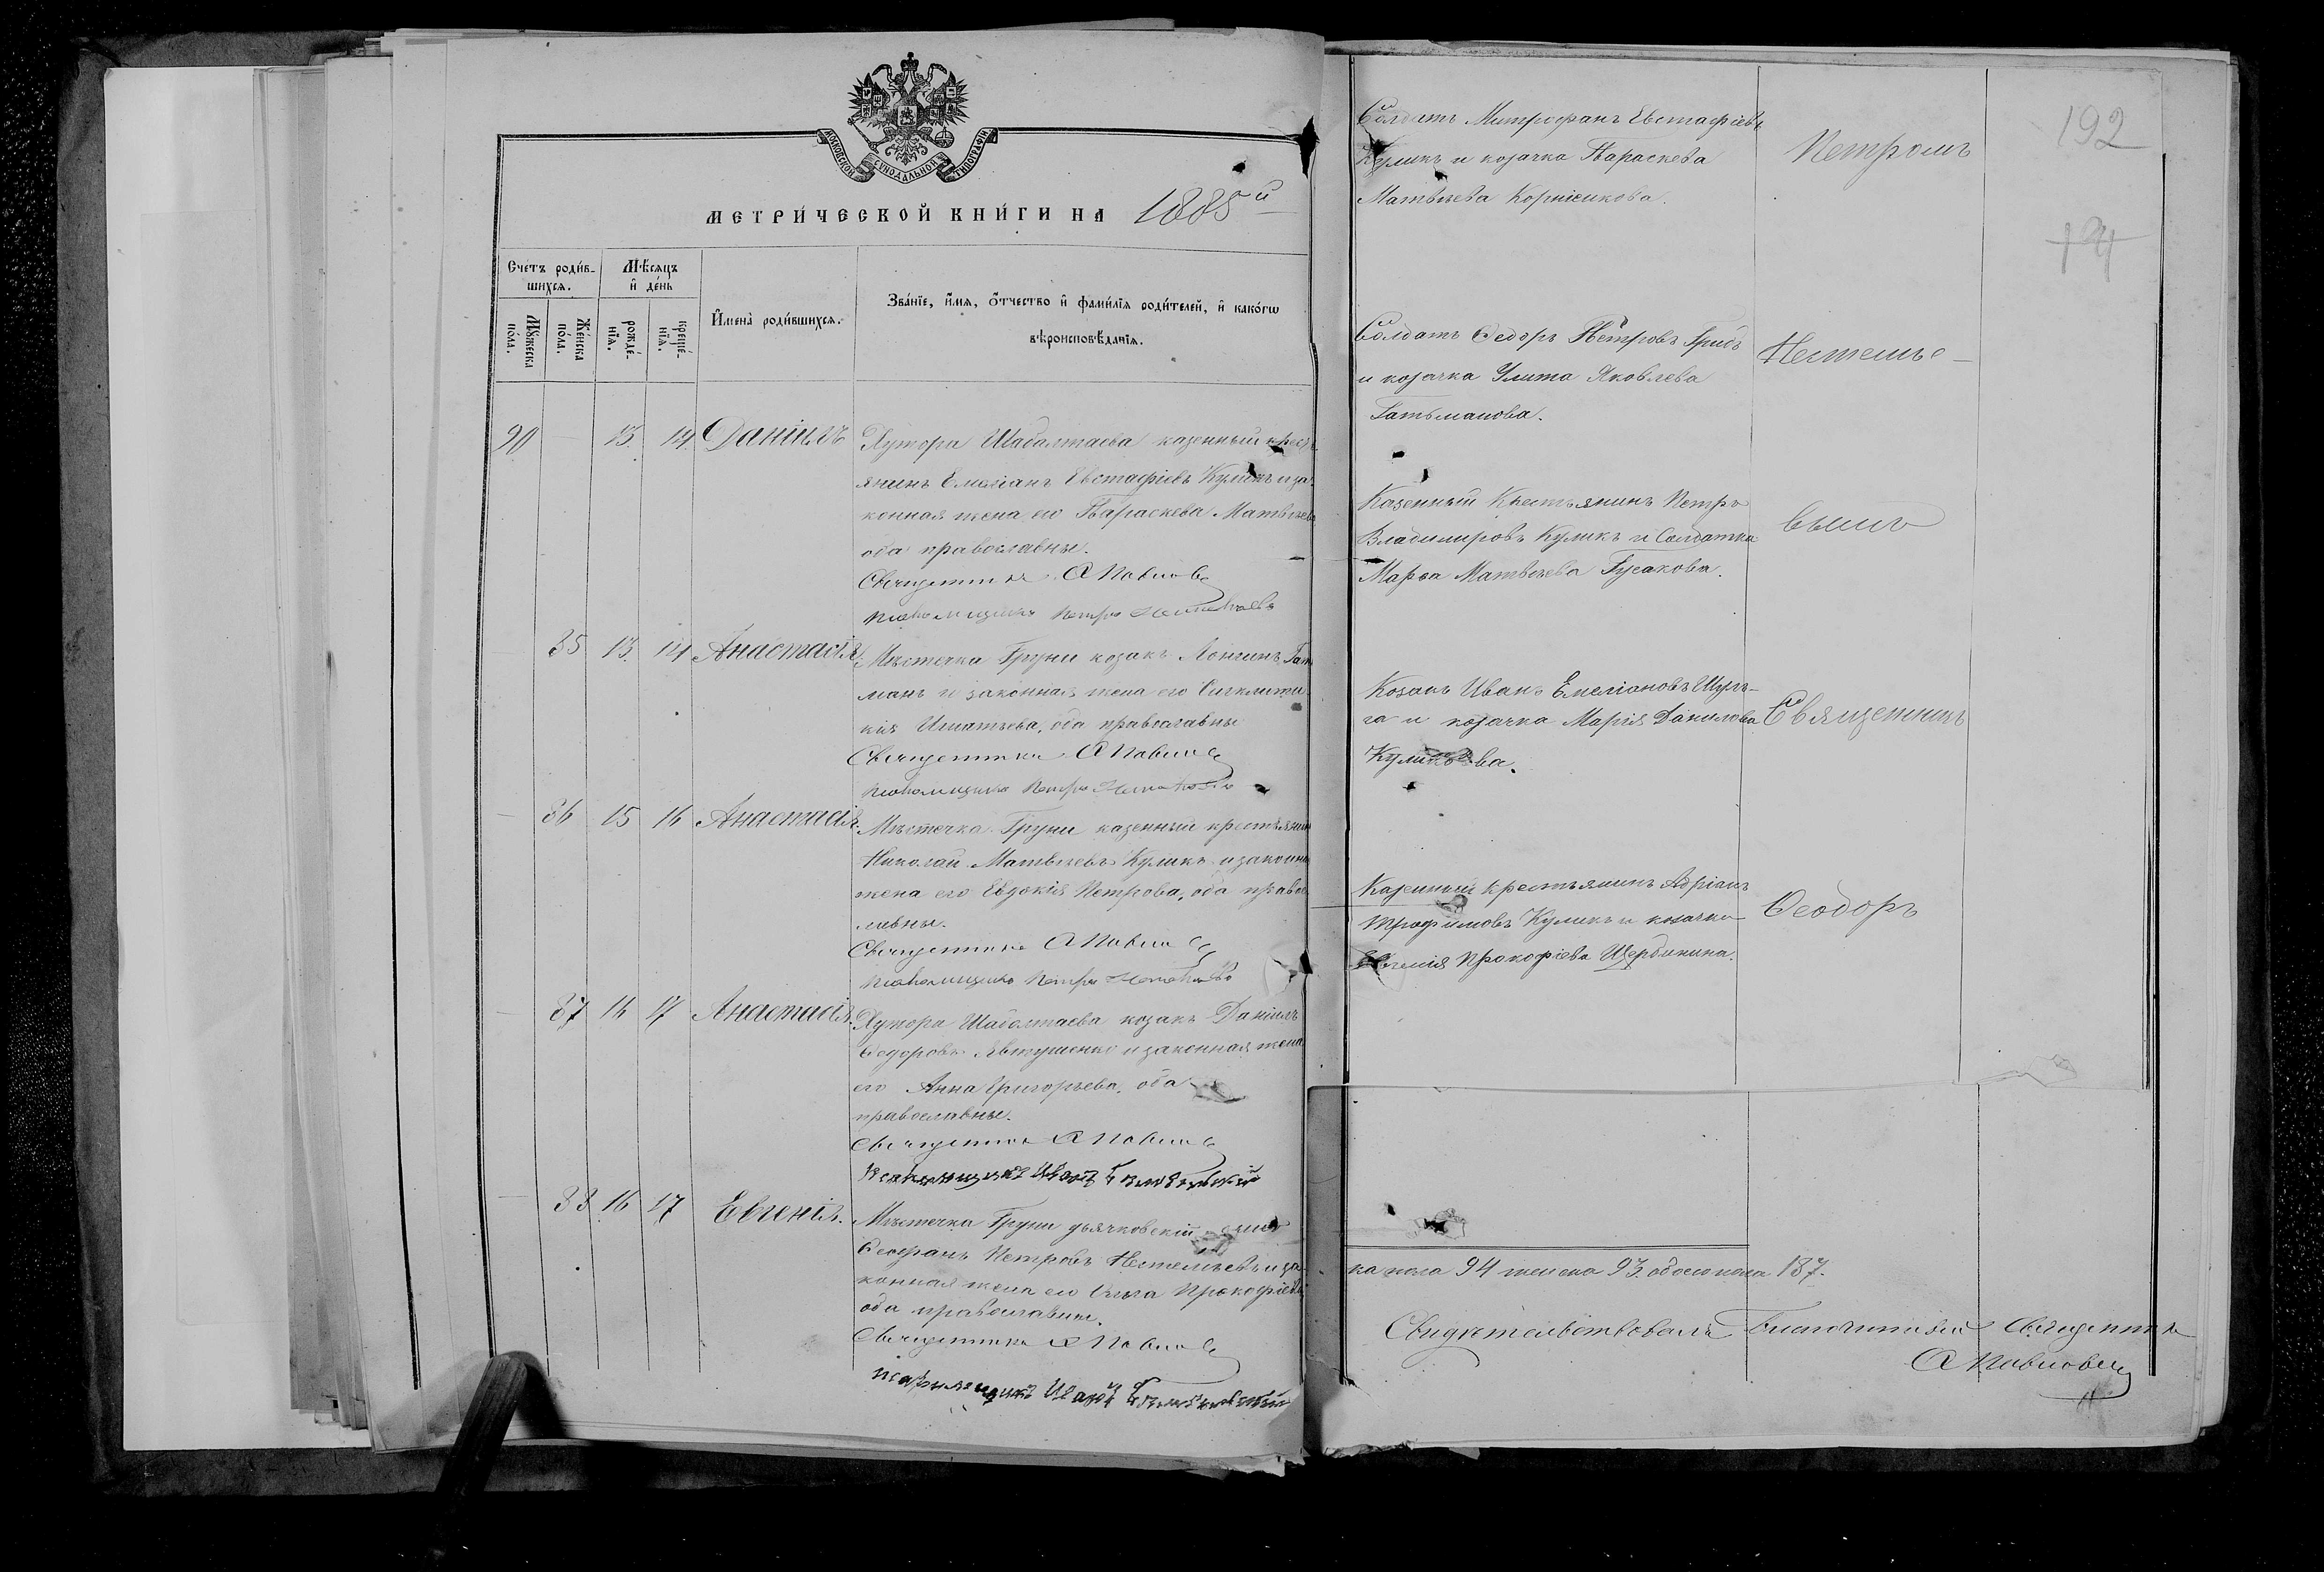 МОСКОВСКОЙ СѴНОДАЛЬНОЙ ТИПОГРАФІИ
МЕТРИ́ЧЕСКОЙ КНИ́ГИ НА 1885й
Сче́тъ роди́в-
шихсѧ.
Мѣ́сѧцъ
и҆ де́нь
Мꙋ́жеска
по́ла.
Же́нска
по́ла.
рожде́-
нїѧ.
креще́-
нїѧ.
И҆мена̀ роди́вшихсѧ.
Зва́нїе, и҆́мѧ, ѻ҆́тчество и҆ фами́лїѧ роди́телей, и҆ како́гѡ
вѣроисповѣ́данїѧ.
90 — 13. 14. Даніилъ
Хутора Шабалтаева казенный кресть
янинъ Емеліанъ Евстафіевъ Куликъ и за
конная жена его Параскева Матвѣева
оба православные.
Священникъ А Павлов
Псаломщикъ Петръ
— 85 13. 14 Анастасія.
Мѣстечка Груни козакъ Лонгинъ Гать
манъ и законная жена его
кія Игнатьева, оба православные
Священникъ А Павлов
Псаломщикъ Петръ
— 86 15 16 Анастасія.
Мѣстечка Груни казенный крестьянин
Николай Матвѣевъ Куликъ и законна
жена его Евдокія Петрова, оба правос
лавные.
Священникъ А Павлов
Псаломщикъ Петръ
— 87 16 17 Анастасія.
Хутора Шабалтаева козакъ Даніилъ
Ѳедоровъ Явтушенко и законная жена
его Анна Григорьева, оба
православные.
Священникъ А Павлов
Псаломщикъ Иванъ
— 88 16 17 Евгенія.
Мѣстечка Груни дьячковскій сынъ
Ѳеофанъ Петровъ и за
конная жена его Ольга Прокофіева
оба православные.
Священникъ А Павлов
Псаломщикъ Иванъ
192
Солдатъ Митрофанъ Евстафіевъ
Куликъ и козачка Параскева
Матвѣева Корніенкова.
Петромъ
Солдатъ Ѳедоръ Петровъ Гридъ
и козачка Улита Яковлева
Гатьманова.
Казенный Крестьянинъ Петръ
Владимировъ Куликъ и Солдатка
Марѳа Матвѣева Гусакова.
Козакъ Иванъ Емеліановъ Шуль-
га и козачка Марія Данилова
Куликова.
Священникъ
Казенный крестьянинъ Адріанъ
Трофимовъ Куликъ и козачка
Прокофіева Щербинина.
Ѳеодоръ
ка пола 94 женска 93. обоего пола 187.
Свидѣтельствовалъ Благочинный Священникъ
А Павлов